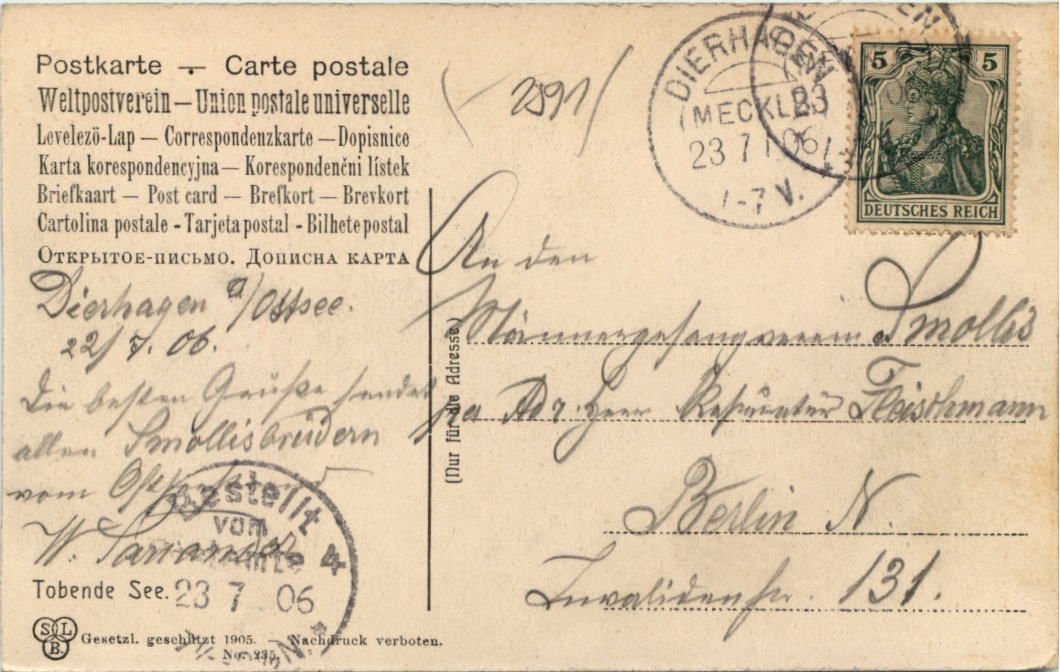 Postkarte — Carte postale
Weltpostverein — Union postale universelle
Levelezö-Lap — Correspondenzkarte — Dopisnice
Karta korespondencyjna — Korespondenčni lístek
Briefkaart — Post card — Brefkort — Brevkort
Cartolina postale - Tarjeta postal - Bilhete postal
Открытое-письмо. Дописна карта
Dierhagen a/Ostsee.
22/7. 06.
Die besten Grüße sendet
allen Smollisbrüdern
vom
W.
Tobende See.
SLB. Gesetzl. geschützt 1905. — Nachdruck verboten.
No. 235.
Bestellt
vom
23 7 06
2591
DIERHAGEN
(MECKLB)
23 7 06
1-7 V.
5 5
DEUTSCHES REICH
(Nur für die Adresse)
An den
Männergesangverein Smollis
Adr. Herr Fleischmann
Berlin N.
Invalidenstr. 131.